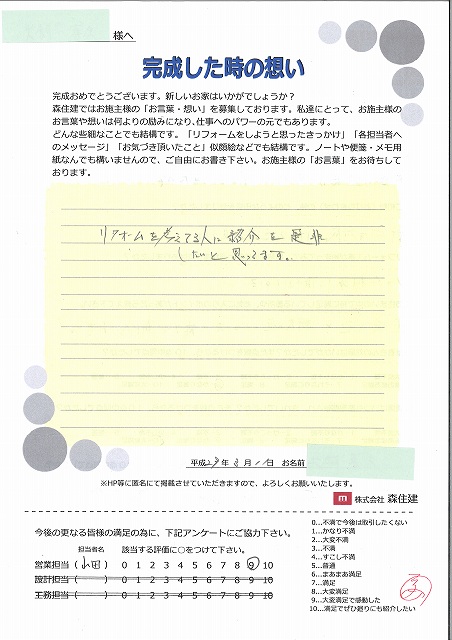 様へ
完成した時の想い
完成おめでとうございます。新しいお家はいかがでしょうか？
森住建ではお施主様の「お言葉・想い」を募集しております。私達にとって、お施主様の
お言葉や想いは何よりの励みになり、仕事へのパワーの元でもあります。
どんな些細なことでも結構です。「リフォームをしようと思ったきっかけ」「各担当者へ
のメッセージ」「お気づき頂いたこと」似顔絵などでも結構です。ノートや便箋・メモ用
紙なんでも構いませんので、ご自由にお書き下さい。お施主様の「お言葉」をお待ちして
おります。
リフォームを考えてる人に紹介を是非
したいと思ってます。
平成29年8月11日 お名前
※HP等に匿名にて掲載させていただきますので、よろしくお願いいたします。
m 株式会社 森住建
今後の更なる皆様の満足の為に、下記アンケートにご協力下さい。
担当者名 該当する評価に○をつけて下さい。
営業担当（山田） 0 1 2 3 4 5 6 7 8 9 10
設計担当（ ） 0 1 2 3 4 5 6 7 8 9 10
工務担当（ ） 0 1 2 3 4 5 6 7 8 9 10
0…不満で今後は取引したくない
1…かなり不満
2…大変不満
3…不満
4…すこし不満
5…普通
6…まあまあ満足
7…満足
8…大変満足
9…大変満足で感動した
10…満足でぜひ廻りにも紹介したい